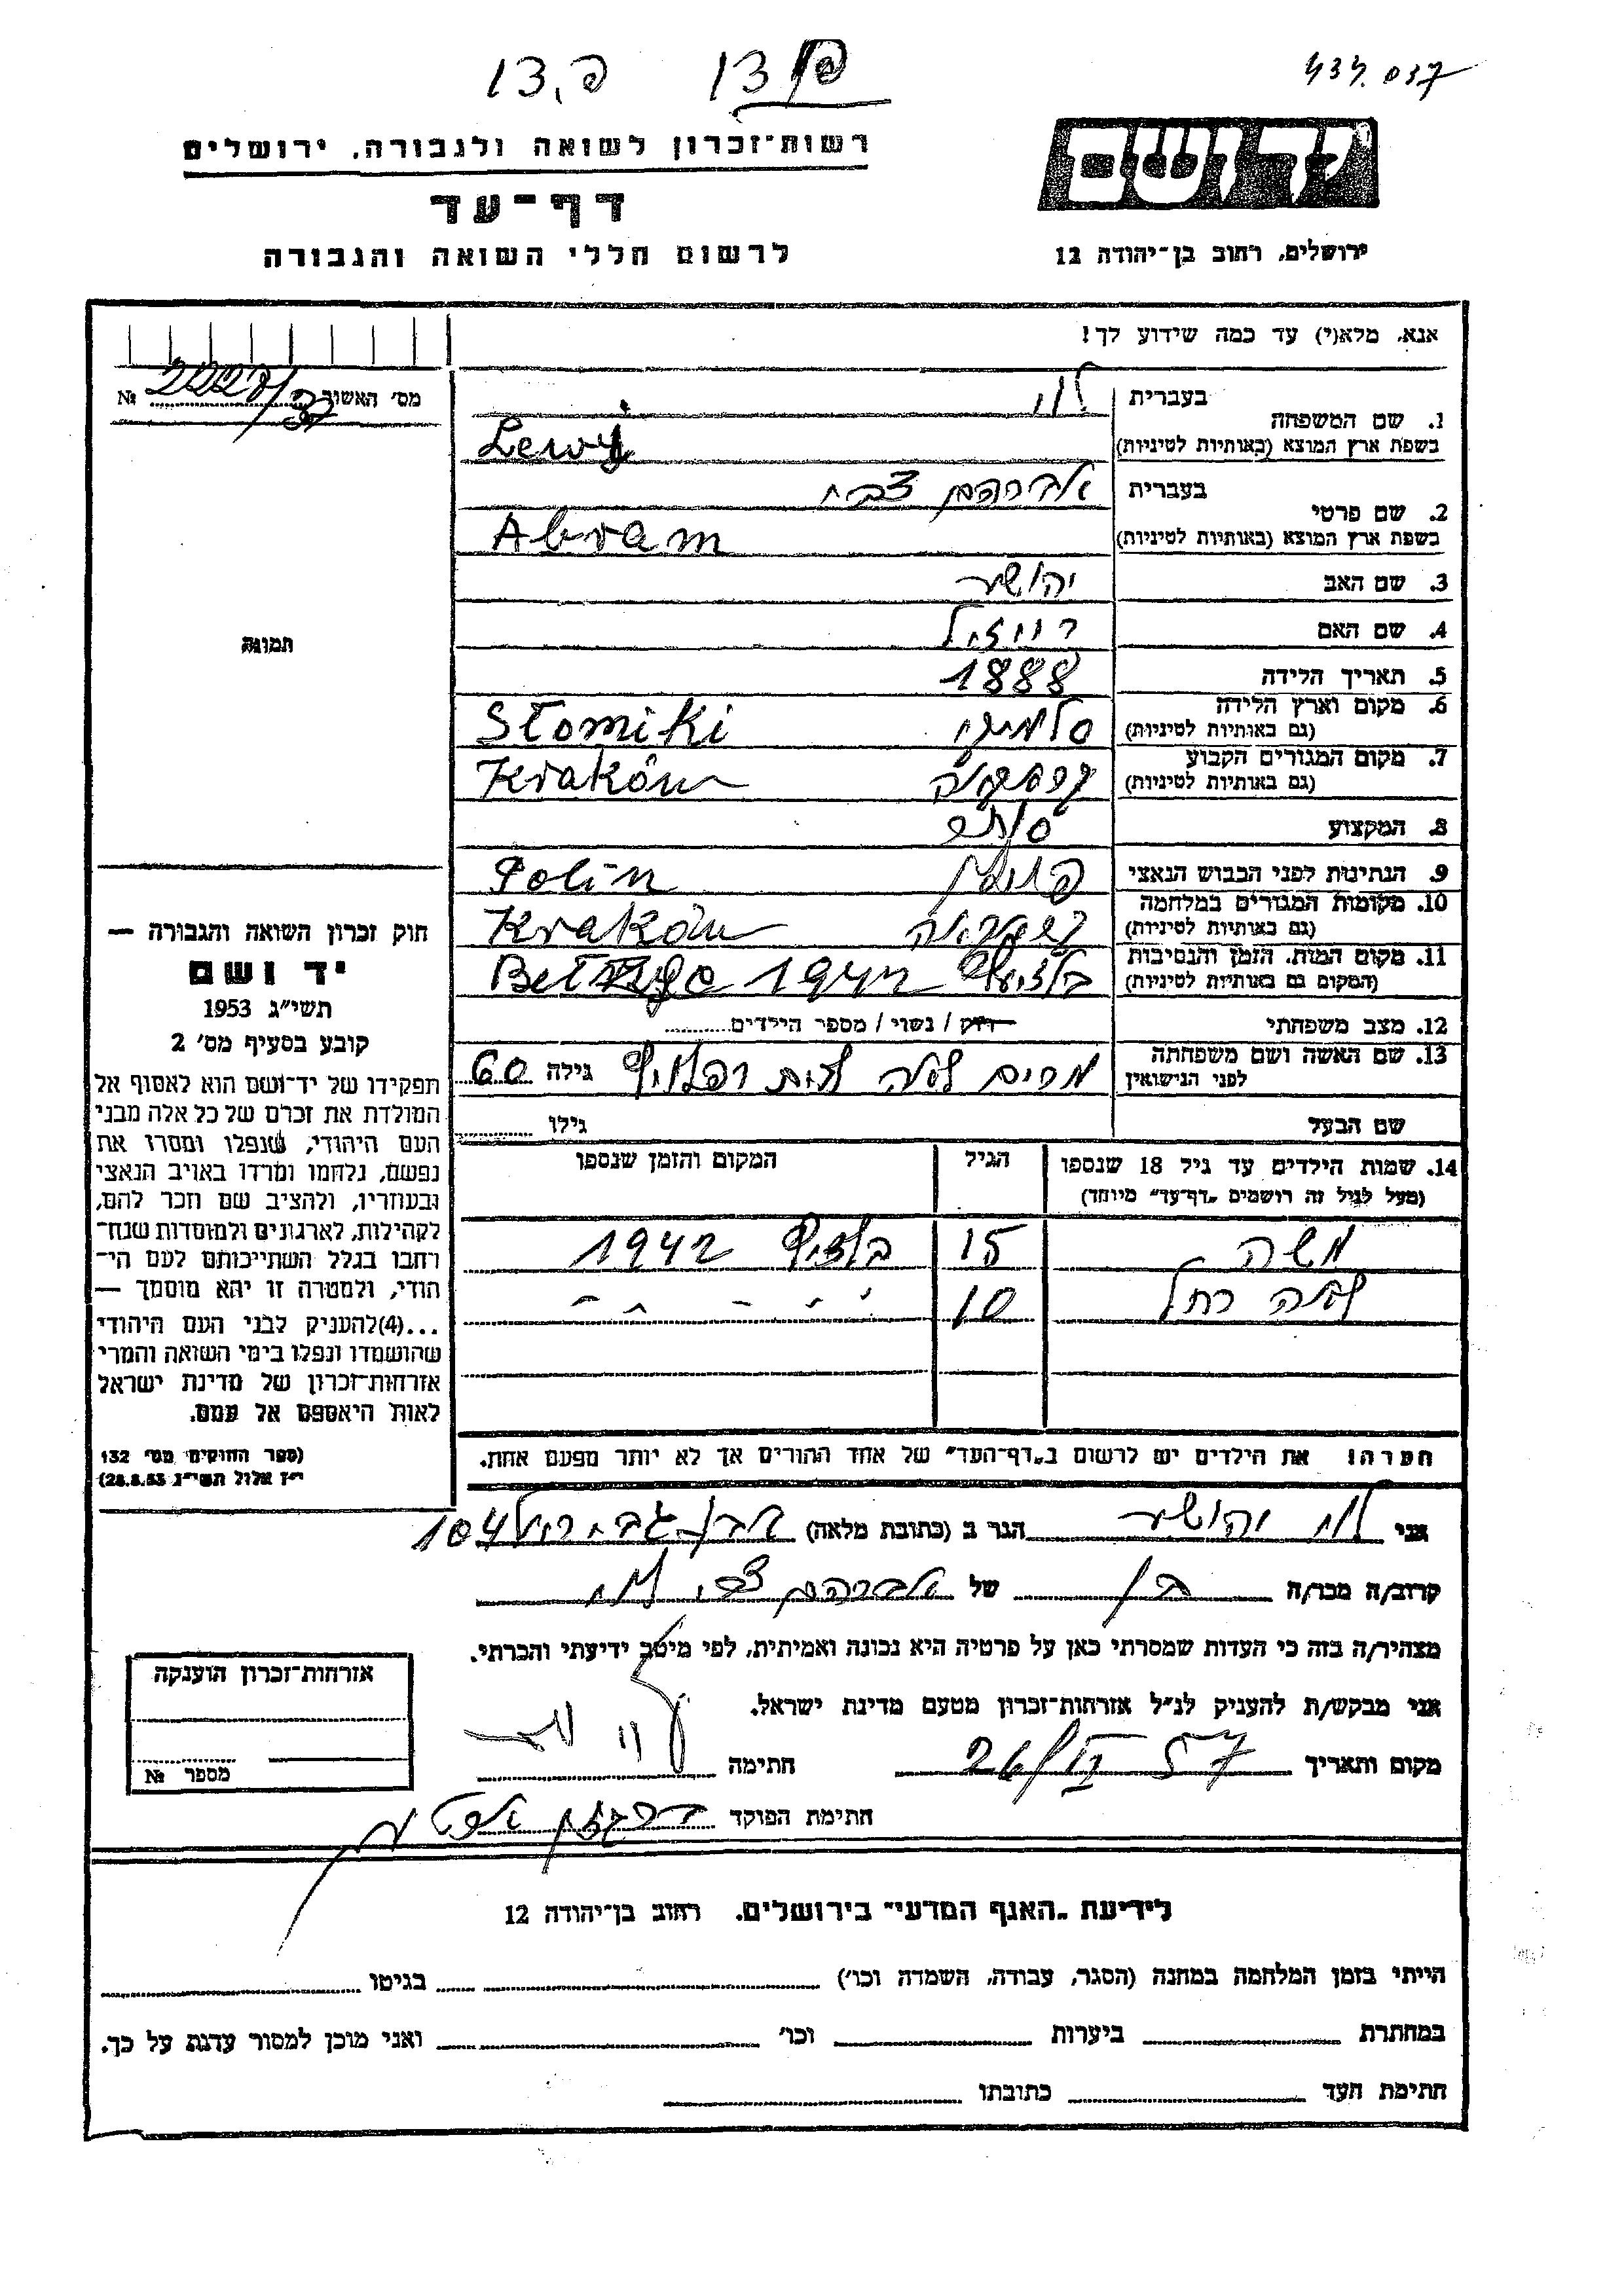 פ.13 פ 13
434.037
יד ושם
ירושלים, רחוב בן־יהודה 12
רשות־זכרון לשואה ולגבורה, ירושלים
דף־עד
לרשום חללי השואה והגבורה
אנא, מלא(י) עד כמה שידוע לך!
מס׳ האשור №
1. שם המשפחה
בעברית לוי
בשפת ארץ המוצא (באותיות לטיניות) Lewy
2. שם פרטי
בעברית אברהם צבי
בשפת ארץ המוצא (באותיות לטיניות) Abram
3. שם האב יהושע
4. שם האם רויזל
5. תאריך הלידה 1888
6. מקום וארץ הלידה Słomiki
(גם באותיות לטיניות)
7. מקום המגורים הקבוע קראקוב Kraków
(גם באותיות לטיניות)
8. המקצוע סוחר
9. הנתינות לפני הכבוש הנאצי פולין Polin
10. מקומות המגורים במלחמה קראקוב Kraków
(גם באותיות לטיניות)
11. מקום המות, הזמן והנסיבות בלזיץ 1942
(המקום גם באותיות לטיניות)
12. מצב משפחתי רוק / נשוי / מספר הילדים
13. שם האשה ושם משפחתה מרים לאה לבית גילה 60
לפני הנישואין
שם הבעל גילו
14. שמות הילדים עד גיל 18 שנספו הגיל המקום והזמן שנספו
(מעל לגיל זה רושמים „דף־עד” מיוחד)
משה 15 בלזיץ 1942
לאה רחל 10 - - - - -
הערה! את הילדים יש לרשום ב„דף־העד” של אחד ההורים אך לא יותר מפעם אחת.
תמונה
חוק זכרון השואה והגבורה —
יד ושם
תשי״ג 1953
קובע בסעיף מס׳ 2
תפקידו של יד־ושם הוא לאסוף אל
המולדת את זכרם של כל אלה מבני
העם היהודי, שנפלו ומסרו את
נפשם, נלחמו ומרדו באויב הנאצי
ובעוזריו, ולהציב שם וזכר להם,
לקהילות, לארגונים ולמוסדות שנח־
רחבו בגלל השתייכותם לעם הי־
הודי, ולמטרה זו יהא מוסמך —
...(4)להעניק לבני העם היהודי
שהושמדו ונפלו בימי השואה והמרי
אזרחות־זכרון של מדינת ישראל
לאות היאספם אל עמם.
(ספר החוקים מס׳ 132
י״ז אלול תשי״ג 28.8.53)
אני לוי יהושע הגר ב (כתובת מלאה) אבן גבירול 104
קרוב/ה מכר/ה בן של אברהם צבי לוי
מצהיר/ה בזה כי העדות שמסרתי כאן על פרטיה היא נכונה ואמיתית, לפי מיטב ידיעתי והכרתי.
אני מבקש/ת להעניק לנ״ל אזרחות־זכרון מטעם מדינת ישראל.
מקום ותאריך חתימה
חתימת הפוקד
אזרחות־זכרון הוענקה
מספר №
לידיעת „האגף המדעי” בירושלים, רחוב בן־יהודה 12
הייתי בזמן המלחמה במחנה (הסגר, עבודה, השמדה וכו׳) בגיטו
במחתרת ביערות וכו׳ ואני מוכן למסור עדות על כך.
חתימת העד כתובתו